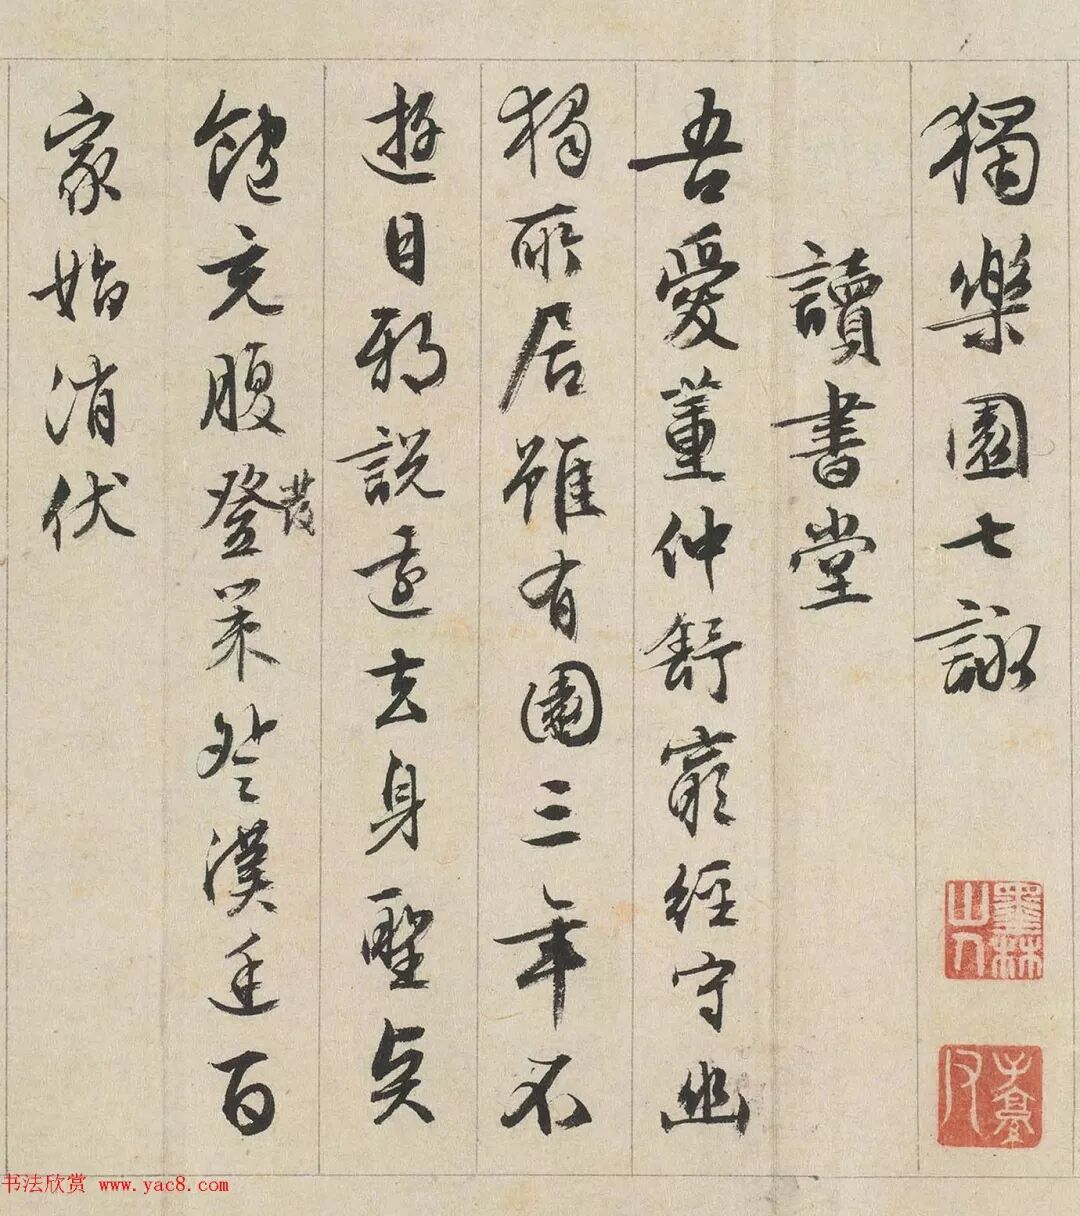 獨樂園七詠
讀書堂
吾愛董仲舒窮經守幽
獨所居雖有園三年不
遊目邪說遠去身聖
飽充腹登發策登漢廷百
家始消伏
墨林山人
子京父
书法欣赏 www.yac8.com